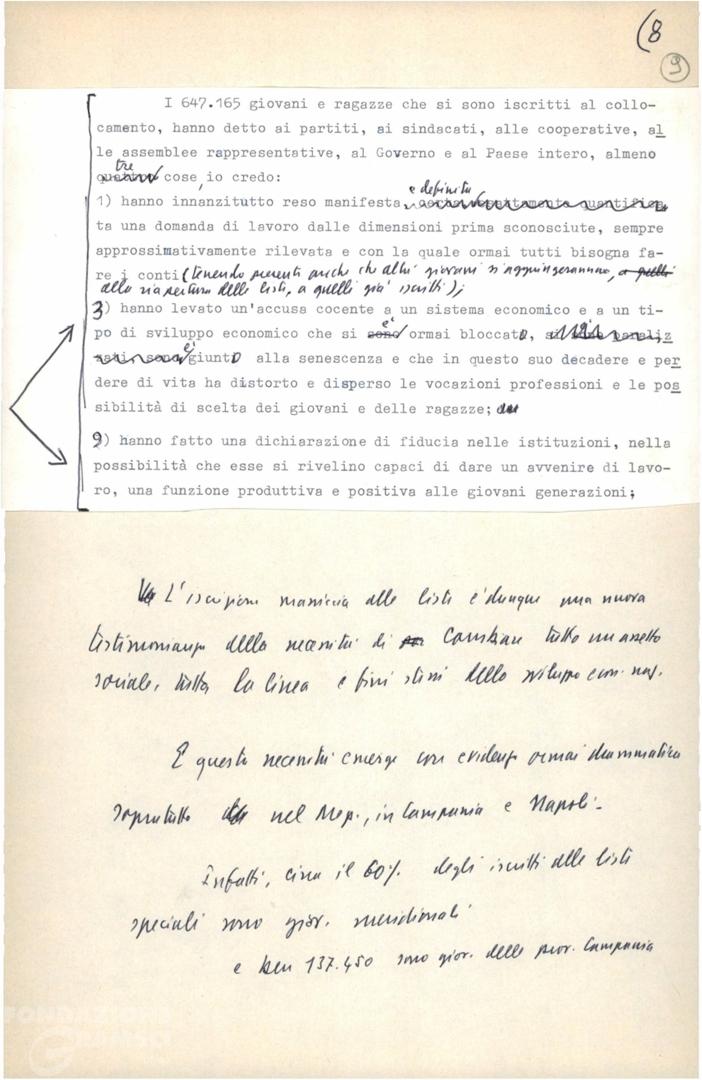 (8
9
I 647.165 giovani e ragazze che si sono iscritti al collo-
camento, hanno detto ai partiti, ai sindacati, alle cooperative, al
le assemblee rappresentative, al Governo e al Paese intero, almeno
tre
quattro cose, io credo:
e definita
1) hanno innanzitutto reso manifesta, esattamente quantifica
ta una domanda di lavoro dalle dimensioni prima sconosciute, sempre
approssimativamente rilevata e con la quale ormai tutti bisogna fa-
re i conti (tenendo presenti anche che altri giovani s'aggiungeranno, a quelli
alla riapertura delle liste, a quelli già iscritti);
3) hanno levato un'accusa cocente a un sistema economico e a un ti-
po di sviluppo economico che si sono è ormai bloccato,
è giunto alla senescenza e che in questo suo decadere e per
dere di vita ha distorto e disperso le vocazioni professioni e le pos
sibilità di scelta dei giovani e delle ragazze;
2) hanno fatto una dichiarazione di fiducia nelle istituzioni, nella
possibilità che esse si rivelino capaci di dare un avvenire di lavo-
ro, una funzione produttiva e positiva alle giovani generazioni;
L'iscrizione massiccia alle liste è dunque una nuova
testimonianza della necessità di cambiare tutto un assetto
sociale, tutta la linea e fini stessi dello sviluppo econ. naz.
E questa necessità emerge con evidenza ormai drammatica
sopratutto nel Mezz., in Campania e Napoli.
Infatti, circa il 60% degli iscritti alle liste
speciali sono giov. meridionali
e ben 137.450 sono giov. delle prov. Campania
FONDAZIONE
GRAMSCI